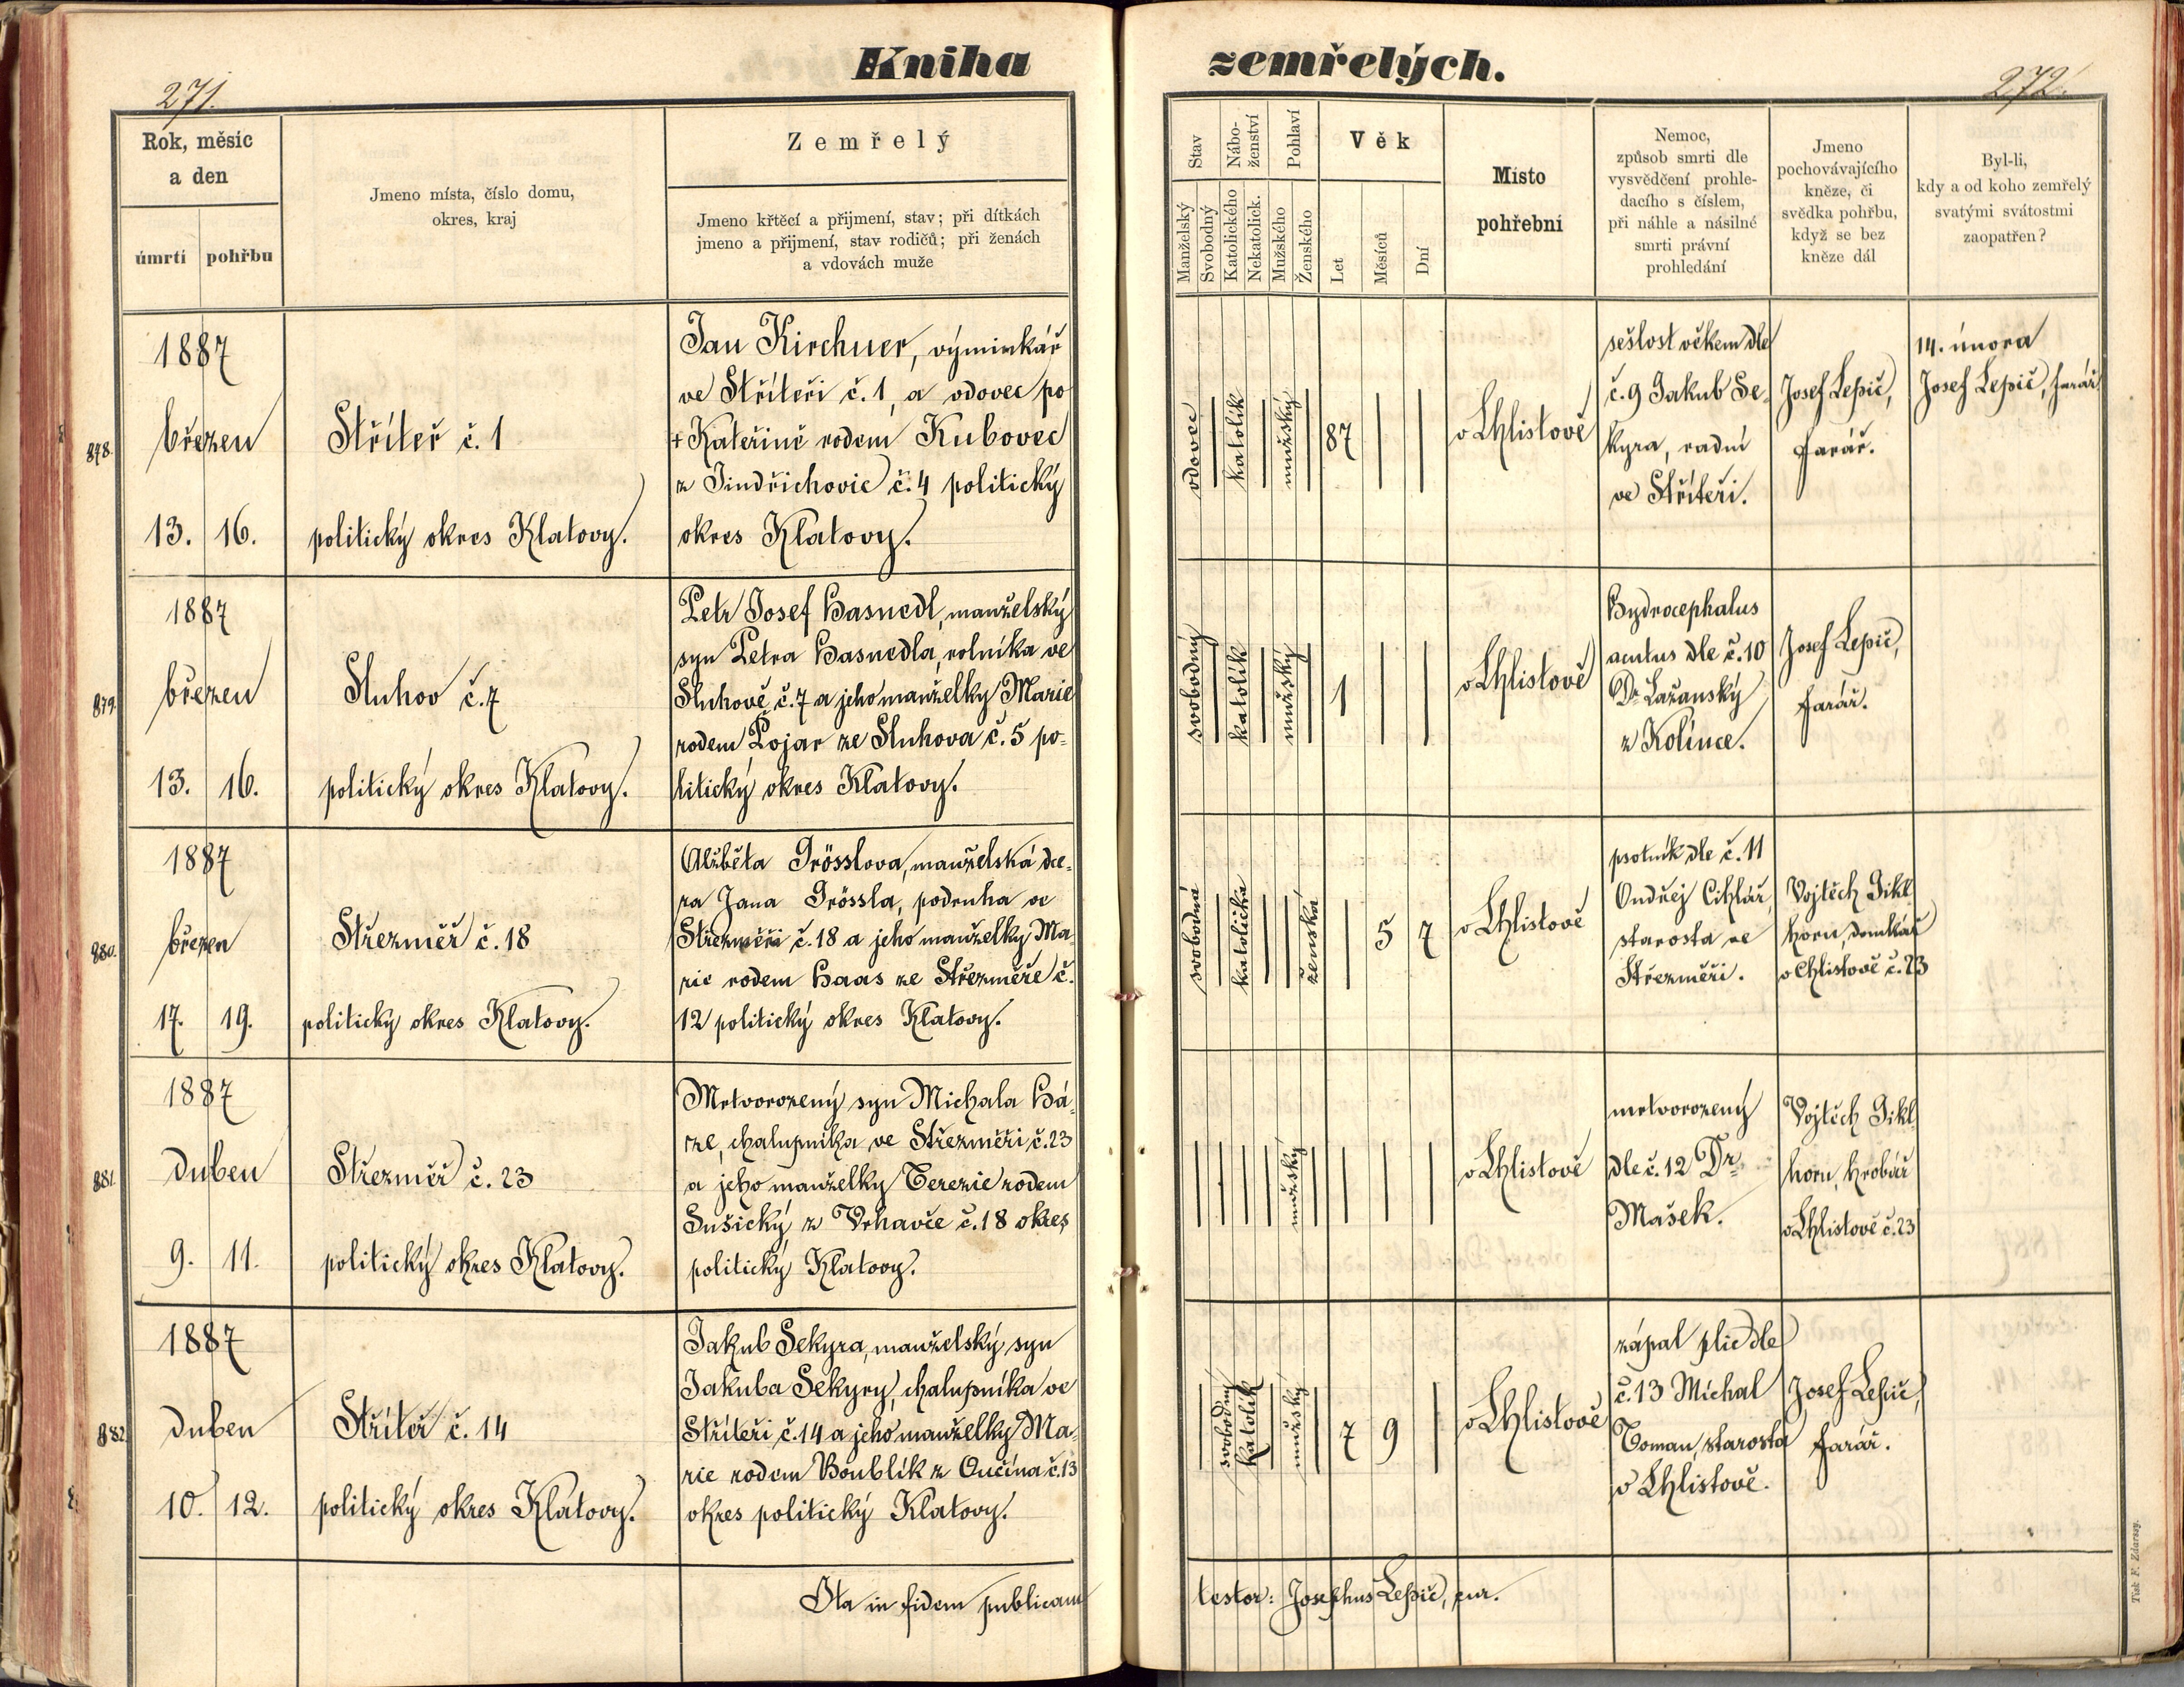 Kniha zemřelých.
271.
272.
Rok, měsíc
a den
úmrtí
pohřbu
Jmeno místa, číslo domu,
okres, kraj
Zemřelý
Jmeno křtěcí a přijmení, stav; při dítkách
jmeno a přijmení, stav rodičů; při ženách
a vdovách muže
Stav
Manželský
Svobodný
Nábo-
ženství
Katolického
Nekatolick.
Pohlaví
Mužského
Ženského
Věk
Let
Měsíců
Dní
Místo
pohřební
Nemoc,
způsob smrti dle
vysvědčení prohle-
dacího s číslem,
při náhle a násilné
smrti právní
prohledání
Jmeno
pochovávajícího
kněze, či
svědka pohřbu,
když se bez
kněze dál
Byl-li,
kdy a od koho zemřelý
svatými svátostmi
zaopatřen?
878.
1887
březen
13. 16.
Střiteř č. 1
politický okres Klatovy.
Jan Kirchner, výminkář
ve Střiteři č. 1, a vdovec po
+ Kateřině rodem Kubovec
z Jindřichovic č. 4 politický
okres Klatovy.
vdovec
katolík
mužský
87
v Chlistově
sešlost věkem dle
č. 9 Jakub Se-
kyra, radní
ve Střiteři.
Josef Lepič,
farář.
14. února
Josef Lepič, farář
879.
1887
březen
13. 16.
Sluhov č. 7
politický okres Klatovy.
Petr Josef Hasnedl, manželský
syn Petra Hasnedla, rolníka ve
Sluhově č. 7 a jeho manželky Marie
rodem Pojar ze Sluhova č. 5 po-
litický okres Klatovy.
svobodný
katolík
mužský
1
v Chlistově
Hydrocephalus
acutus dle č. 10
Dr. Lažanský
z Kolince.
Josef Lepič,
farář.
880.
1887
březen
17. 19.
Střezměř č. 18
politický okres Klatovy.
Alžběta Grösslova, manželská dce-
ra Jana Grössla, podruha ve
Střezměři č. 18 a jeho manželky Ma-
rie rodem Haas ze Střezměře č.
12 politický okres Klatovy.
svobodná
katolička
ženská
5 7
v Chlistově
psotník dle č. 11
Ondřej Cihlář,
starosta ve
Střezměři.
Vojtěch Gikl-
horn, domkář
v Chlistově č. 23
881.
1887
duben
9. 11.
Střezměř č. 23
politický okres Klatovy.
Mrtvorozený syn Michala Há-
ze, chalupníka ve Střezměři č. 23
a jeho manželky Terezie rodem
Sušický z Vrhavče č. 18 okres
politický Klatovy.
mužský
v Chlistově
mrtvorozený
dle č. 12 Dr.
Mašek.
Vojtěch Gikl-
horn, hrobář
v Chlistově č. 23
882.
1887
duben
10. 12.
Střiteř č. 14
politický okres Klatovy.
Jakub Sekyra, manželský syn
Jakuba Sekyry, chalupníka ve
Střiteři č. 14 a jeho manželky Ma-
rie rodem Boublík z Ončína č. 13
okres politický Klatovy.
svobodný
katolík
mužský
7 9
v Chlistově
zápal plic dle
č. 13 Michal
Toman, starosta
v Chlistově.
Josef Lepič,
farář.
Ita in fidem publicam
testor: Josephus Lepič, cur.
Tisk F. Zdarssy.